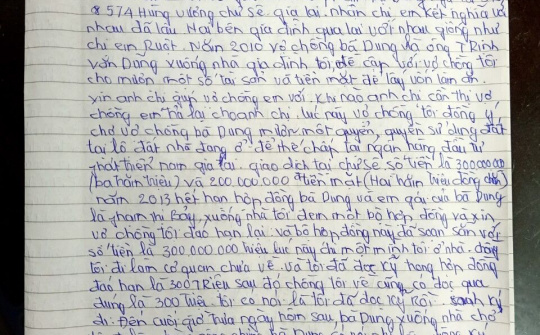 8.574 Hùng vương chư sê gia lai. nhân chị em kết nghĩa với
nhau đã lâu Hai bên gia đình qua lại với nhau giống như
chị em Ruột. Năm 2010 vợ chồng bà Dung và ông T Rinh
văn Dung xuống nhà gia đình tôi, đề cập với vợ chồng tôi
cho mượn một số tài sản và tiền mặt để lấy vốn làm ăn.
xin anh chị giúp vợ chồng em với. Khi nào anh chị cần thì vợ
chồng em trả lại cho anh chị. lúc này vợ chồng tôi đồng ý
cho vợ chồng bà Dung mượn một quyển, quyền sử dụng đất
tại lô đất nhà đang ở để thế chấp tại ngân hàng đầu tư
phát triển nam gia lai. giao dịch tại chư sê số tiền là 300.000.000
(ba trăm triệu) và 200.000.000 tiền mặt (Hai trăm triệu đồng chẵn)
năm 2013 hết hạn hợp đồng bà Dung và em gái của bà Dung
là phạm thị Bảy, xuống nhà tôi đem một bộ hợp đồng và xin
vợ chồng tôi đáo hạn lại. và bộ hợp đồng này đã soạn sẵn với
số tiền là 300.000.000 triệu lúc này chỉ một mình tôi ở nhà. chồng
tôi đi làm cơ quan chưa về. và tôi đã đọc kỹ trong hợp đồng
đáo hạn là 300 Triệu sau đó chồng tôi về cũng có đọc qua
đúng là 300 Triệu. tôi có nói là tôi đã đọc kỹ Rồi. ký
đi. Đến cuối giờ trưa ngày hôm sau bà Dung xuống nhà chở
bà Dung